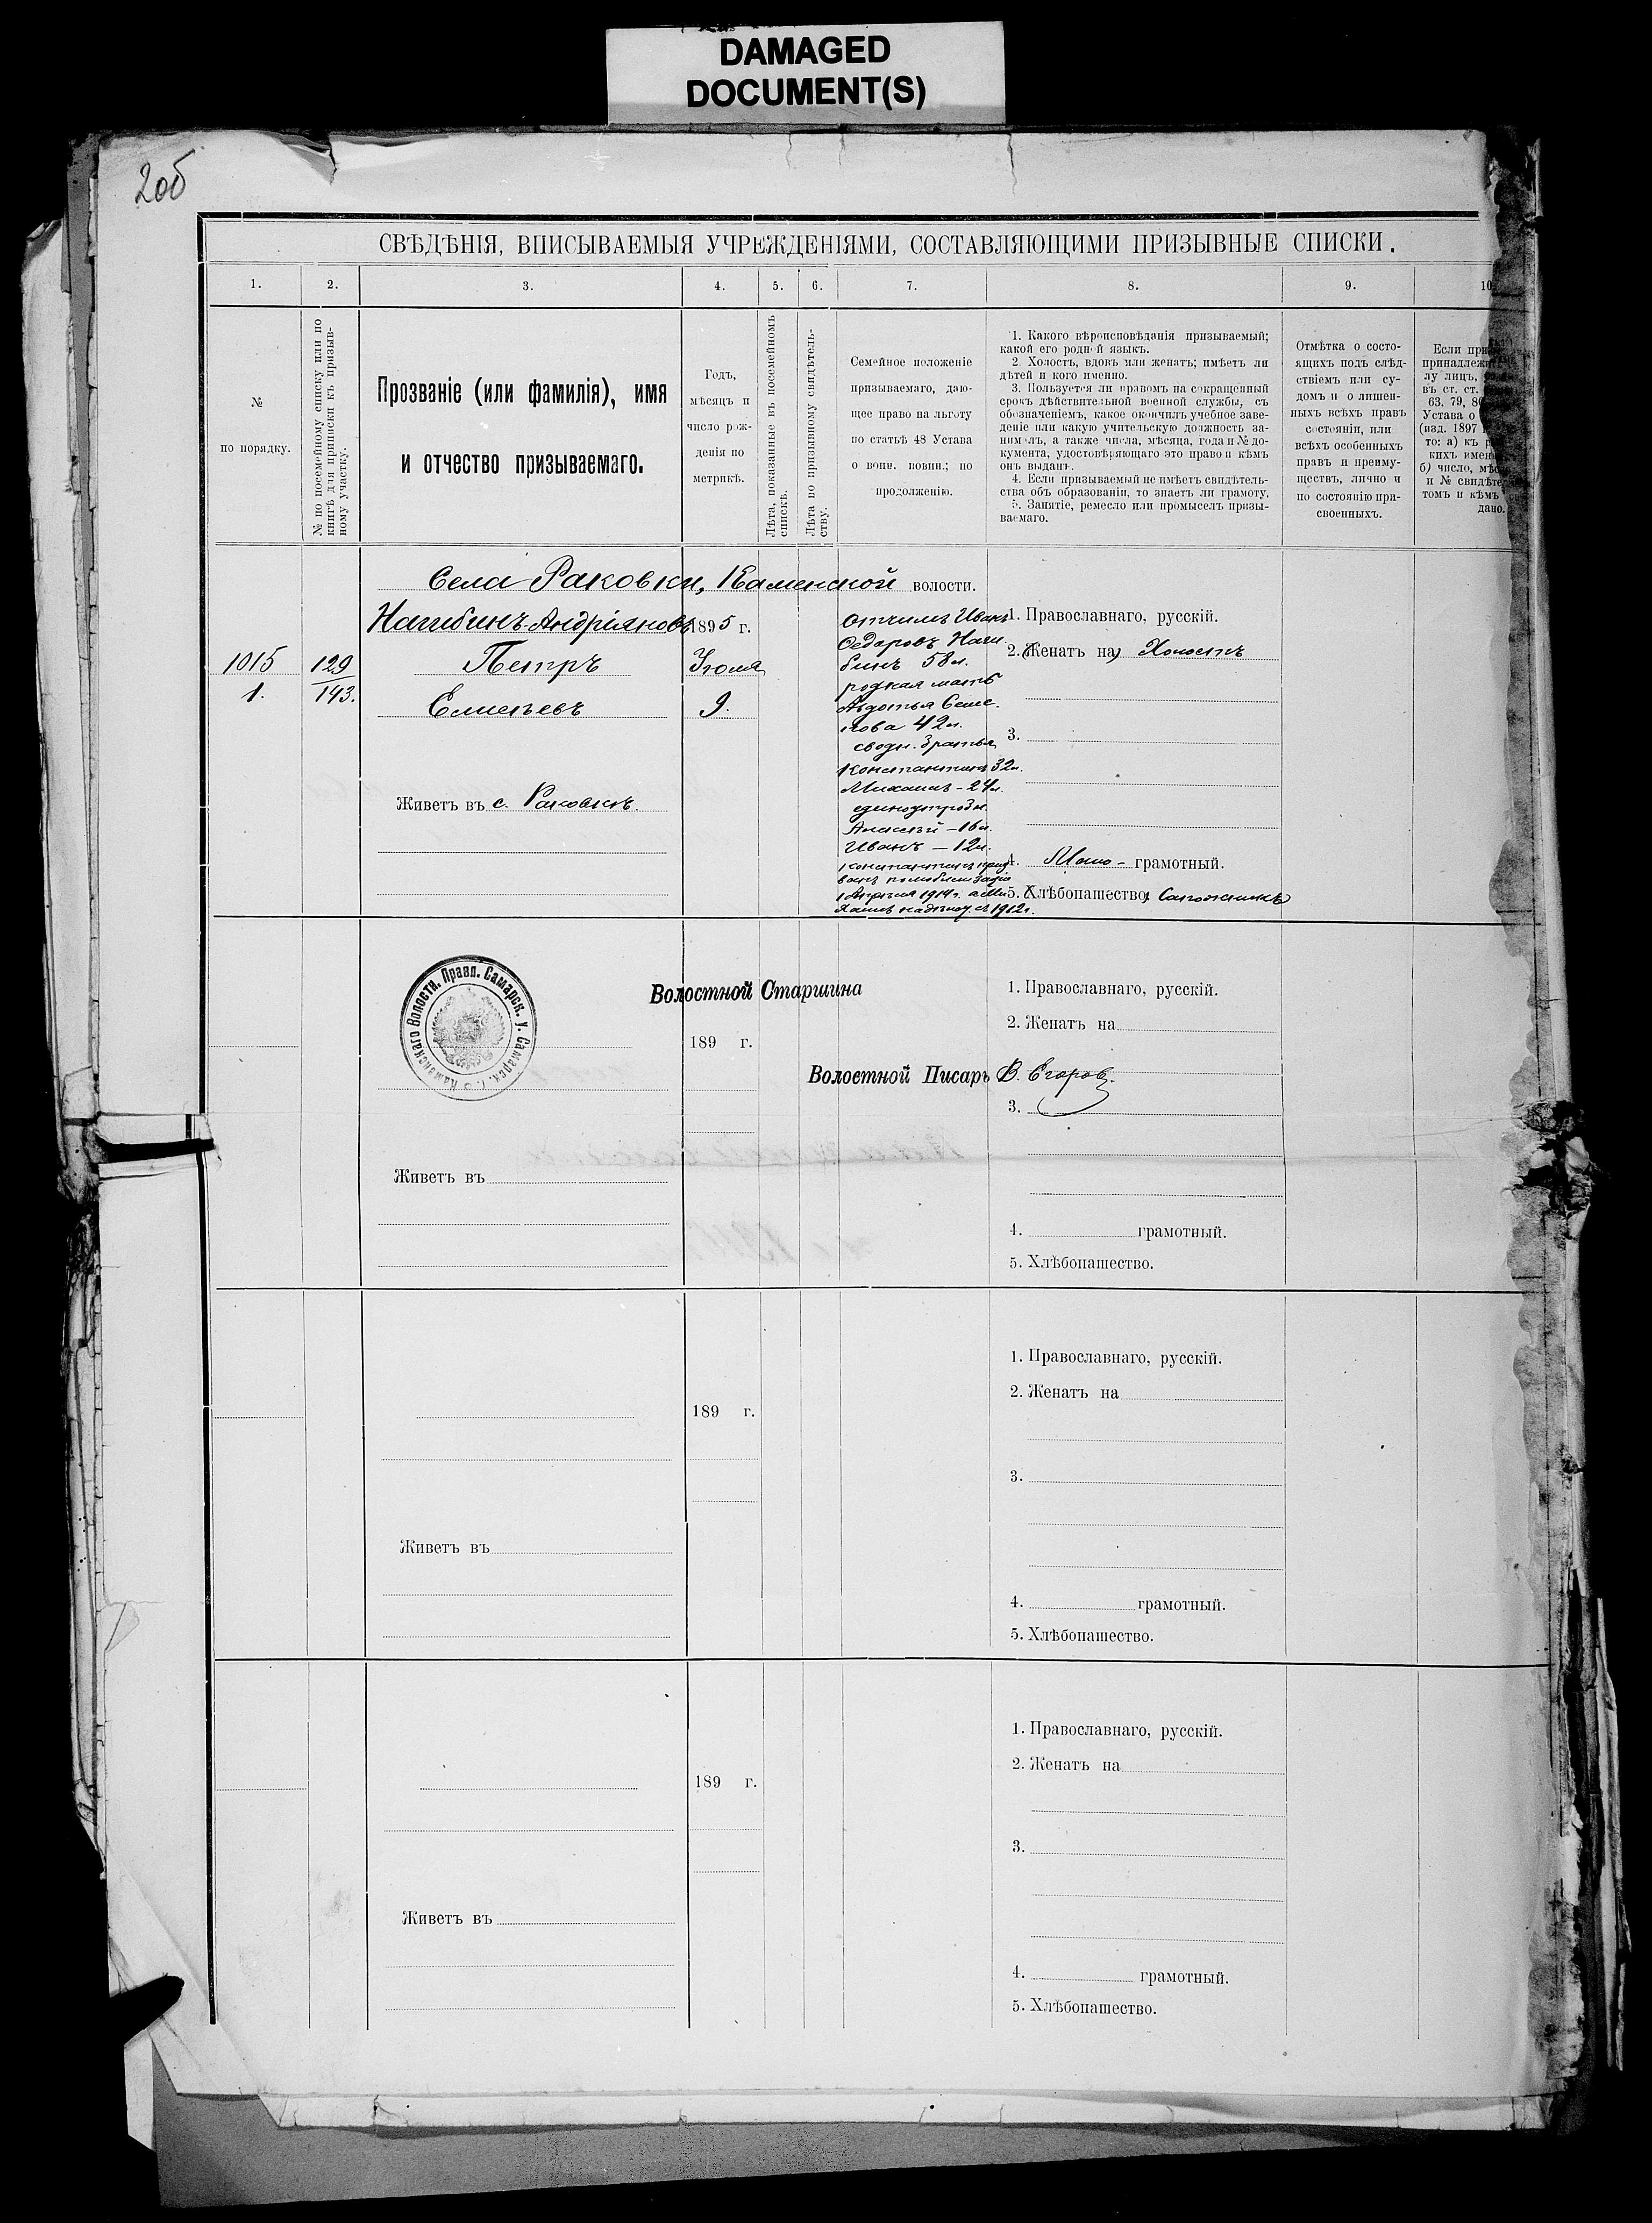 DAMAGED
DOCUMENT(S)
206
СВѢДѢНІЯ, ВПИСЫВАЕМЫЯ УЧРЕЖДЕНІЯМИ, СОСТАВЛЯЮЩИМИ ПРИЗЫВНЫЕ СПИСКИ.
1. 2. 3. 4. 5. 6. 7. 8. 9. 10
№
по порядку.
№ по посемейному списку или по
книгѣ для приписки къ призыв-
ному участку.
Прозваніе (или фамилія), имя
и отчество призываемаго.
Годъ,
мѣсяцъ и
число рож-
денія по
метрикѣ.
Лѣта, показанные въ посемейномъ
спискѣ.
Лѣта по призывному свидѣтель-
ству.
Семейное положеніе
призываемаго, даю-
щее право на льготу
по статьѣ 48 Устава
о воин. повин.; по
продолженію.
1. Какого вѣроисповѣданія призываемый;
какой его родной языкъ.
2. Холостъ, вдовъ или женатъ; имѣетъ ли
дѣтей и кого именно.
3. Пользуется ли правомъ на сокращенный
срокъ дѣйствительной военной службы, съ
обозначеніемъ, какое окончилъ учебное заве-
деніе или какую учительскую должность за-
нимаетъ, а также числа, мѣсяца, года и № до-
кумента, удостовѣряющаго это право и кѣмъ
онъ выданъ.
4. Если призываемый не имѣетъ свидѣтель-
ства объ образованіи, то знаетъ ли грамоту.
5. Занятіе, ремесло или промыселъ призы-
ваемаго.
Отмѣтка о состо-
ящихъ подъ слѣд-
ствіемъ или су-
домъ и о лишен-
ныхъ всѣхъ правъ
состоянія, или
всѣхъ особенныхъ
правъ и преиму-
ществъ, лично и
по состоянію при-
своенныхъ.
Если при
принадлежи
лу лицъ,
въ ст. ст.
63, 79, 80
Устава о
(изд. 1897
то: а) къ
кихъ имен
б) число, мѣс
и № свидѣте
томъ и кѣмъ
дано.
Села Раковки, Каменской волости.
1015
1.
129
143.
Нагибинъ-Андріяновъ
Петръ
Елисѣевъ
Живетъ въ с. Раковкѣ.
1895 г.
Іюля
9.
Отчимъ Иванъ
Ѳедоровъ Наги-
бинъ 58 л.
родная мать
Авдотья Семе-
нова 42 л.
сводн. братья
Константинъ 32 л.
Михаилъ - 24 л.
единоутробн.
Алексѣй - 16 л.
Иванъ - 12 л.
Константинъ приз-
ванъ по мобилизаціи
1914 г. а Ми-
хаилъ съ 1912 г.
1. Православнаго, русскій.
2. (Женатъ на) Холостъ
3.
4. Мало-грамотный.
5. (Хлѣбопашество) Сапожникъ
Каменскаго Волостн. Правл. Самарск. у. Самарск. г.
Волостной Старшина
189 г.
Волостной Писарь В. Егоровъ.
Живетъ въ
1. Православнаго, русскій.
2. Женатъ на
3.
4. грамотный.
5. Хлѣбопашество.
189 г.
Живетъ въ
1. Православнаго, русскій.
2. Женатъ на
3.
4. грамотный.
5. Хлѣбопашество.
189 г.
Живетъ въ
1. Православнаго, русскій.
2. Женатъ на
3.
4. грамотный.
5. Хлѣбопашество.